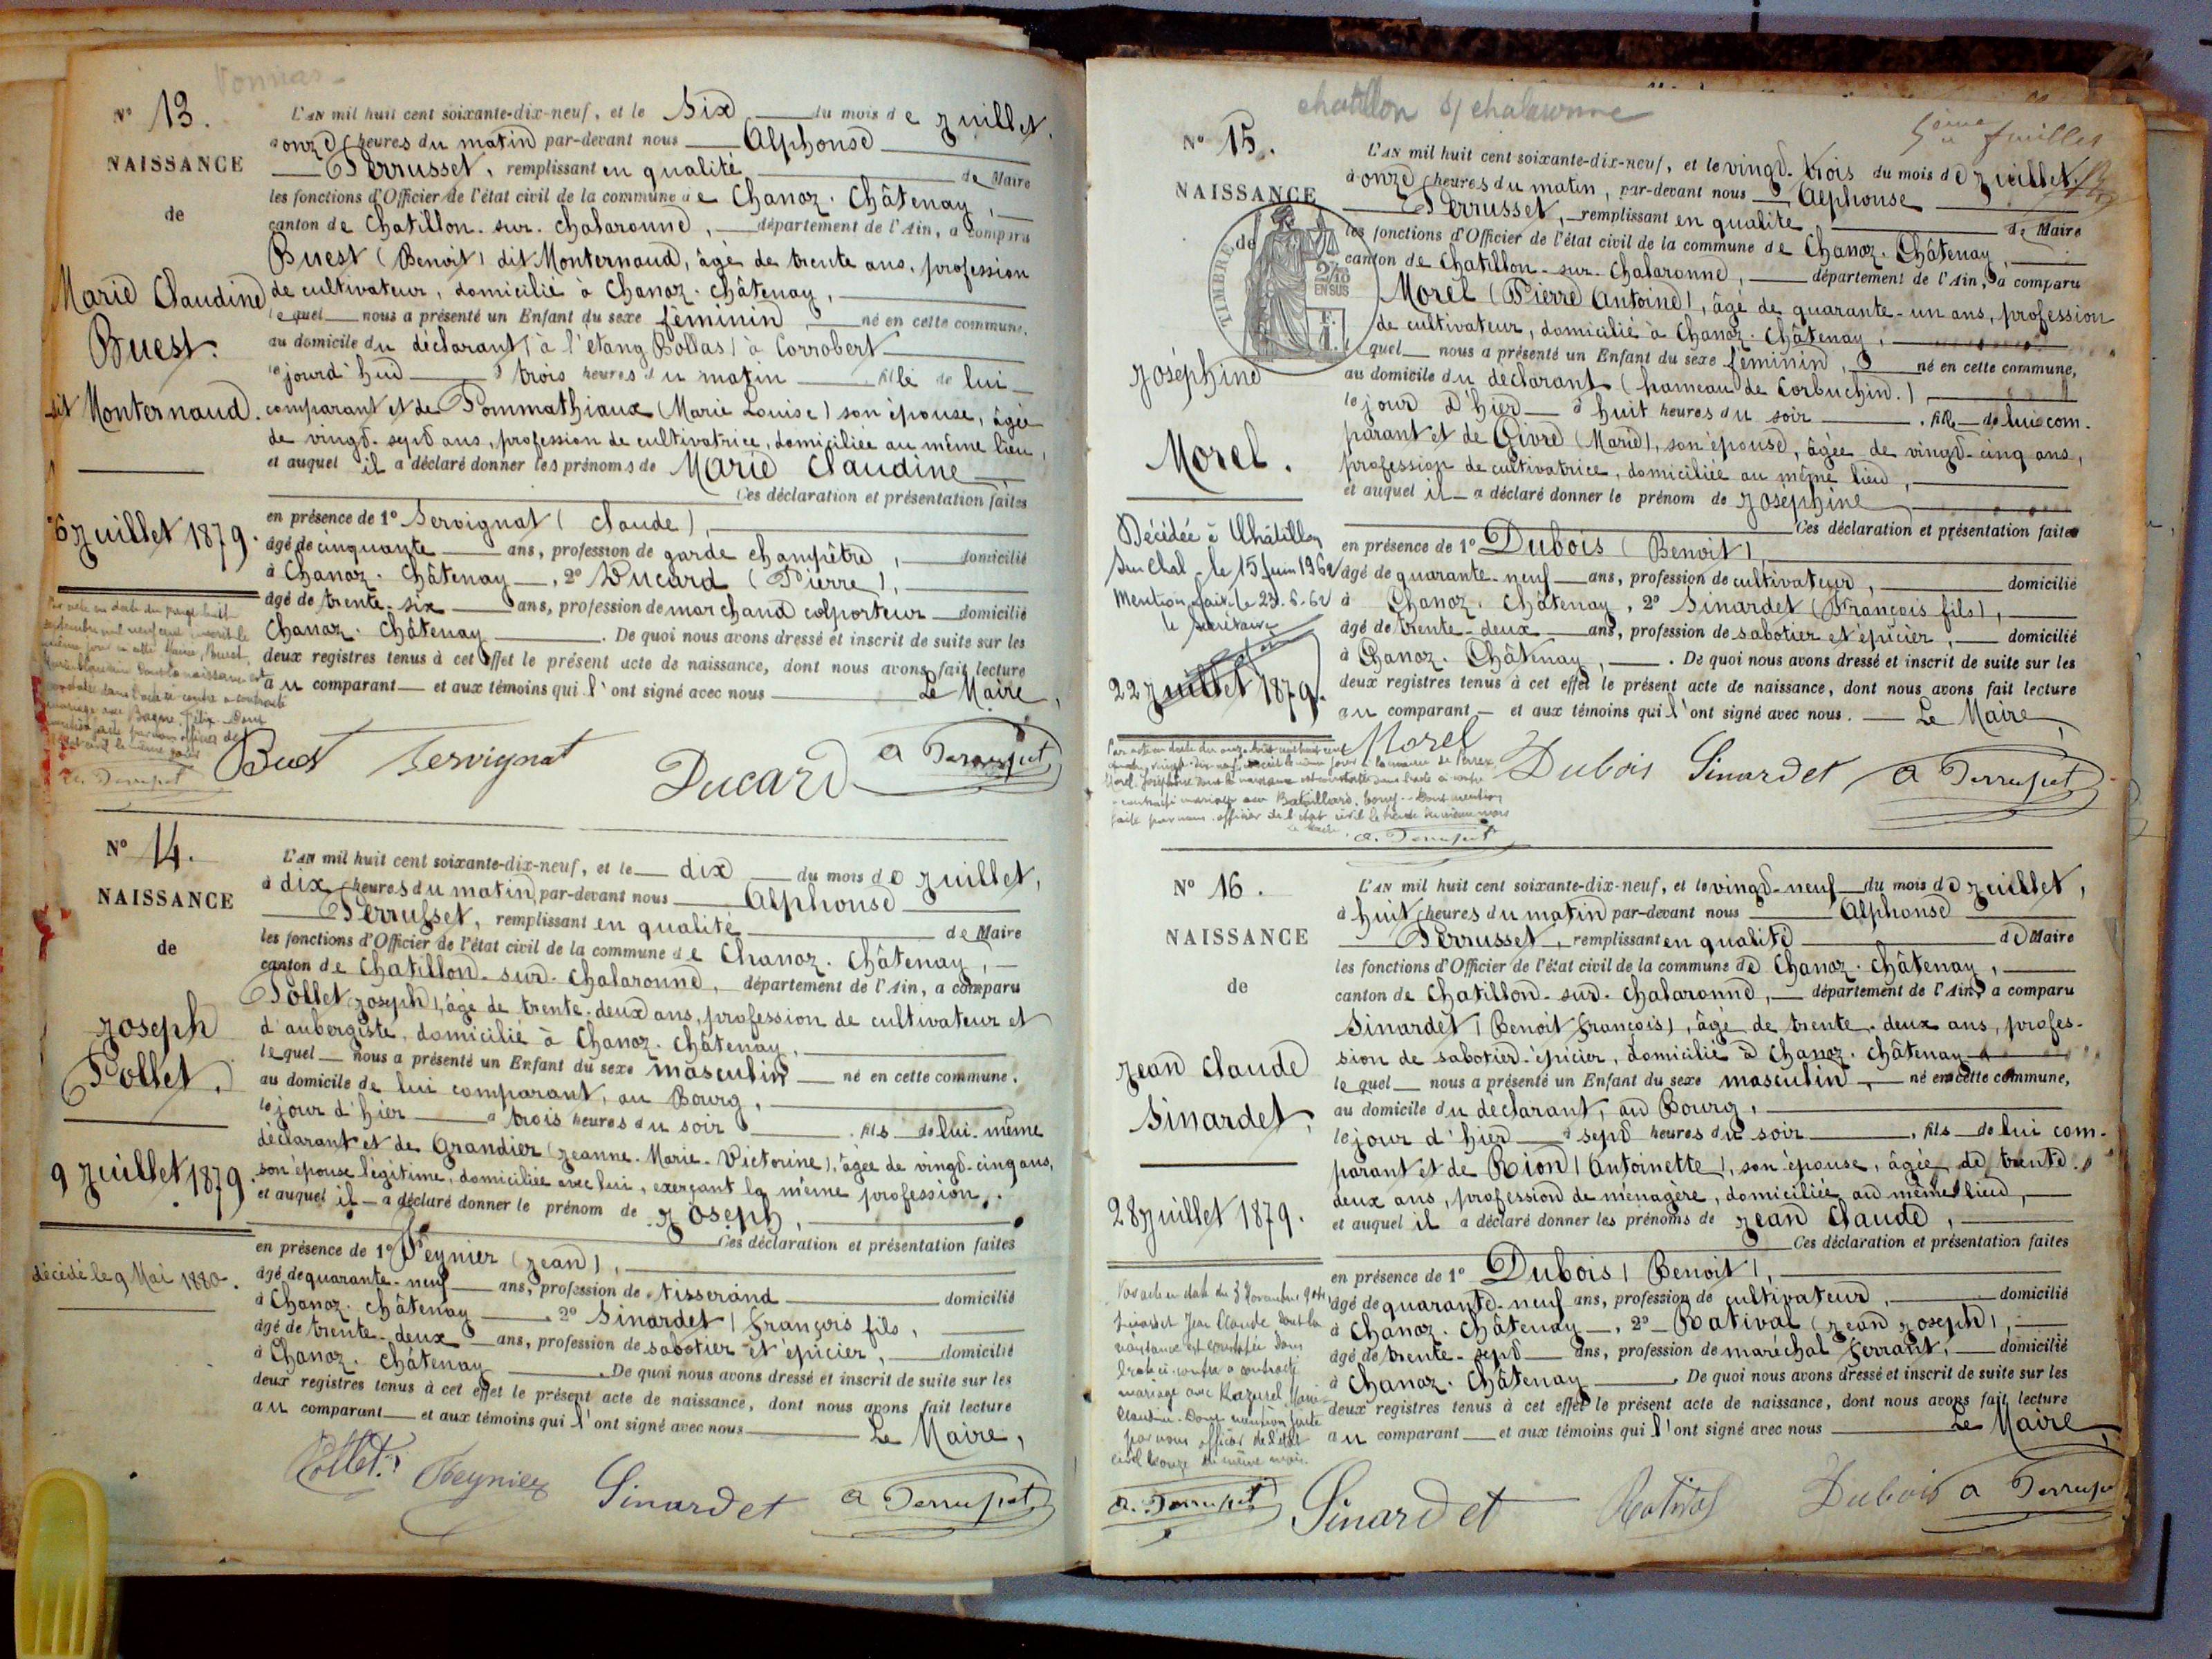 Vonnas
N° 13.
NAISSANCE
de
Marie Claudine
Buest.
dit Monternaud.
6 Juillet 1879.
L'AN mil huit cent soixante-dix-neuf, et le Six du mois de Juillet,
à onze heures du matin par-devant nous Alphonse
Perrusset, remplissant en qualité de Maire
les fonctions d'Officier de l'état civil de la commune de Chanoz-Châtenay,
canton de Chatillon-sur-Chalaronne, département de l'Ain, a comparu
Buest (Benoit) dit Monternaud, âgé de trente ans, profession
de cultivateur, domicilié à Chanoz-Châtenay,
lequel nous a présenté un Enfant du sexe féminin, né en cette commune,
au domicile du déclarant (à l'étang Bollas) à Corrobert
jourd'hui à trois heures du matin fille de lui
comparant et de Pommathiaux (Marie Louise) son épouse, âgée
de vingt-sept ans, profession de cultivatrice, domiciliée au même lieu,
et auquel il a déclaré donner les prénoms de Marie Claudine
Ces déclaration et présentation faites
en présence de 1° Servignat (Claude),
âgé de cinquante ans, profession de garde champêtre, domicilié
à Chanoz-Châtenay, 2° Ducard (Pierre),
âgé de trente-six ans, profession de marchand colporteur domicilié
Chanoz-Châtenay. De quoi nous avons dressé et inscrit de suite sur les
deux registres tenus à cet effet le présent acte de naissance, dont nous avons fait lecture
au comparant et aux témoins qui l'ont signé avec nous Le Maire,
Buest Servignat Ducard A Perrusset
N° 14.
NAISSANCE
de
Joseph
Pollet.
9 Juillet 1879.
décédé le 9 Mai 1880.
L'AN mil huit cent soixante-dix-neuf, et le dix du mois de Juillet,
à dix heures du matin par-devant nous Alphonse
Perrusset, remplissant en qualité de Maire
les fonctions d'Officier de l'état civil de la commune de Chanoz-Châtenay,
canton de Chatillon-sur-Chalaronne, département de l'Ain, a comparu
Pollet (Joseph), âgé de trente-deux ans, profession de cultivateur et
d'aubergiste, domicilié à Chanoz-Châtenay,
lequel nous a présenté un Enfant du sexe masculin né en cette commune,
au domicile de lui comparant, au Bourg,
le jour d'hier à trois heures du soir, fils de lui-même
déclarant et de Grandier (Jeanne-Marie-Victorine), âgée de vingt-cinq ans,
son épouse légitime, domiciliée avec lui, exerçant la même profession,
et auquel il a déclaré donner le prénom de Joseph,
Ces déclaration et présentation faites
en présence de 1° Peynier (Jean),
âgé de quarante-neuf ans, profession de tisserand domicilié
à Chanoz-Châtenay, 2° Sinardet (François fils,
âgé de trente-deux ans, profession de sabotier et épicier, domicilié
à Chanoz-Châtenay. De quoi nous avons dressé et inscrit de suite sur les
deux registres tenus à cet effet le présent acte de naissance, dont nous avons fait lecture
au comparant et aux témoins qui l'ont signé avec nous Le Maire,
Pollet Peynier Sinardet A Perrusset
chatillon s/ chalaronne
5ème feuillet
N° 15.
NAISSANCE
de
TIMBRE
2/10
EN SUS
F.
1.
Joséphine
Morel.
Décédée à Châtillon
sur Chal. le 15 Juin 1962
Mention faite le 23.6.62
le Secrétaire
22 Juillet 1879.
L'AN mil huit cent soixante-dix-neuf, et le vingt-trois du mois de Juillet,
à onze heures du matin, par-devant nous Alphonse
Perrusset, remplissant en qualité de Maire
les fonctions d'Officier de l'état civil de la commune de Chanoz-Châtenay,
canton de Chatillon-sur-Chalaronne, département de l'Ain, a comparu
Morel (Pierre Antoine), âgé de quarante-un ans, profession
de cultivateur, domicilié à Chanoz-Châtenay,
quel nous a présenté un Enfant du sexe féminin, né en cette commune,
au domicile du déclarant (hameau de Corbuchin.)
le jour d'hier à huit heures du soir, fille de lui com-
parant et de Givre (Marie), son épouse, âgée de vingt-cinq ans,
profession de cultivatrice, domiciliée au même lieu,
et auquel il a déclaré donner le prénom de Joséphine
Ces déclaration et présentation faites
en présence de 1° Dubois (Benoit)
âgé de quarante-neuf ans, profession de cultivateur, domicilié
à Chanoz-Châtenay, 2° Sinardet (François fils),
âgé de trente-deux ans, profession de sabotier et épicier, domicilié
à Chanoz-Châtenay, . De quoi nous avons dressé et inscrit de suite sur les
deux registres tenus à cet effet le présent acte de naissance, dont nous avons fait lecture
au comparant et aux témoins qui l'ont signé avec nous. Le Maire,
Morel Dubois Sinardet A Perrusset
N° 16.
NAISSANCE
de
Jean Claude
Sinardet.
28 Juillet 1879.
civil le onze du même mois.
A. Perrusset
L'AN mil huit cent soixante-dix-neuf, et le vingt-neuf du mois de Juillet,
à huit heures du matin par-devant nous Alphonse
Perrusset, remplissant en qualité de Maire
les fonctions d'Officier de l'état civil de la commune de Chanoz-Châtenay,
canton de Chatillon-sur-Chalaronne, département de l'Ain, a comparu
Sinardet (Benoit François), âgé de trente-deux ans, profes-
sion de sabotier-épicier, domicilié à Chanoz-Châtenay
lequel nous a présenté un Enfant du sexe masculin, né en cette commune,
au domicile du déclarant, au Bourg,
le jour d'hier à sept heures du soir, fils de lui com-
parant et de Rion (Antoinette), son épouse, âgée de trente-
deux ans, profession de ménagère, domiciliée au même lieu,
et auquel il a déclaré donner les prénoms de Jean Claude,
Ces déclaration et présentation faites
en présence de 1° Dubois (Benoit),
âgé de quarante-neuf ans, profession de cultivateur, domicilié
à Chanoz-Châtenay, 2° Rativat (Jean Joseph),
âgé de trente-sept ans, profession de maréchal ferrant, domicilié
à Chanoz-Châtenay. De quoi nous avons dressé et inscrit de suite sur les
deux registres tenus à cet effet le présent acte de naissance, dont nous avons fait lecture
au comparant et aux témoins qui l'ont signé avec nous Le Maire,
Sinardet Rativat Dubois A Perrusset